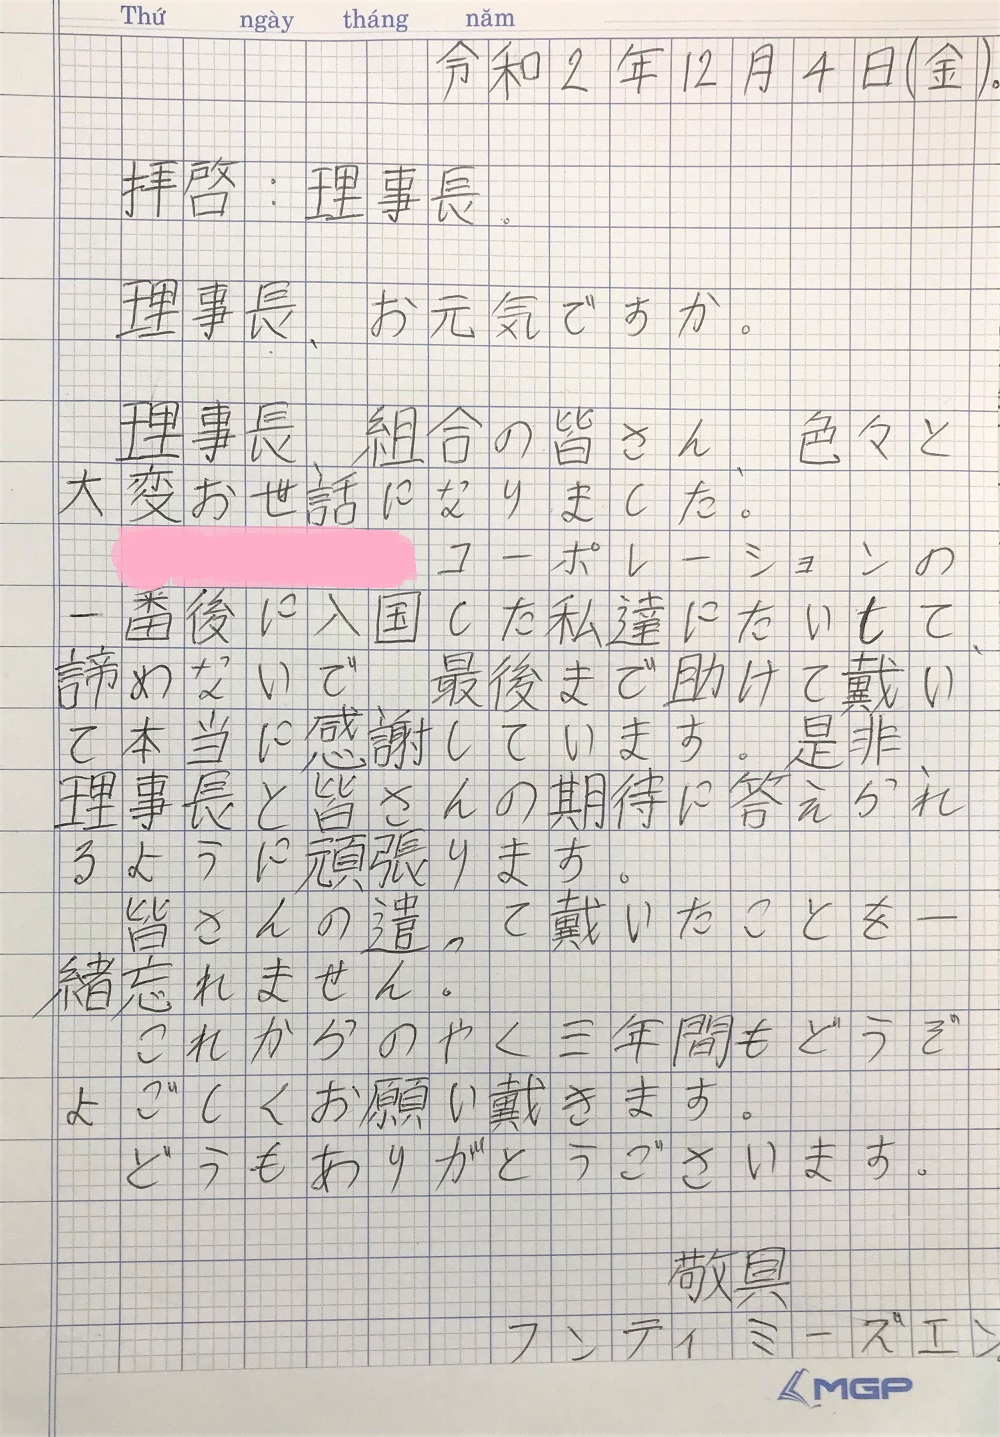 Thứ ngày tháng năm
令和2年12月4日(金).
拝啓:理事長.
理事長、お元気ですか。
理事長、組合の皆さん、色々と
大変お世話になりました。
コーポレーションの
一番後に入国した私達にたいして、
諦めないで 最後まで助けて戴い
て本当に感謝しています。是非
理事長と皆さんの期待に答えられ
るように頑張ります。
皆さんの遣って戴いたことを一
緒忘れません。
これからのやく三年間もどうぞ
よごしくお願い戴きます。
どうもありがとうございます。
敬具
フンティミーズエン
MGP